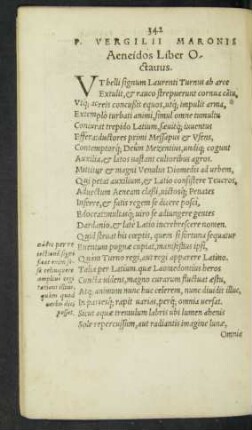 342
P. VERGILII MARONIS
Aeneidos Liber O-
ctauus.
VT belli signum Laurenti Turnus ab arce
Extulit, & rauco strepuerunt cornua cātu,
Vtq; acreis concussit equos, utq; impulit arma,
Extemplò turbati animi, simul omne tumultu
Coniurat trepido Latium, sæuitq; iuuentus
Effera: ductores primi Messapus & Vfens,
Contemptorq; Deûm Mezentius, undiq; cogunt
Auxilia, & latos uastant cultoribus agros.
Mittitur & magni Venulus Diomedis ad urbem,
Qui petat auxilium, & Latio consistere Teucros,
Aduectum Aeneam classi, uictosq; Penates
Inferre, & fatis regem se dicere posci,
Edoceat: multasq; uiro se adiungere gentes
Dardanio, & latè Latio increbrescere nomen.
Quid struat his cœptis, quem si fortuna sequatur
Euentum pugnæ cupiat, manifestius ipsi,
Quàm Turno regi, aut regi apparere Latino.
Talia per Latium. quæ Laomedontius heros
Cuncta uidens, magno curarum fluctuat æstu,
Atq; animum nunc huc celerem, nunc diuidit illuc,
In parteisq; rapit uarias, perq; omnia uersat.
Sicut aquæ tremulum labris ubi lumen ahenis
Sole repercussum, aut radiantis imagine lunæ,
Omnia